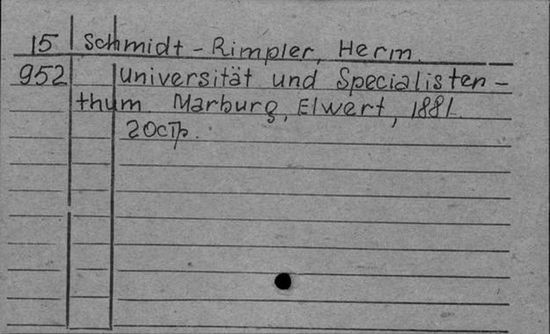 15 Schmidt - Rimpler, Herm.
952 Universität und Specialisten -
thum Marburg, Elwert, 1881.
20стр.